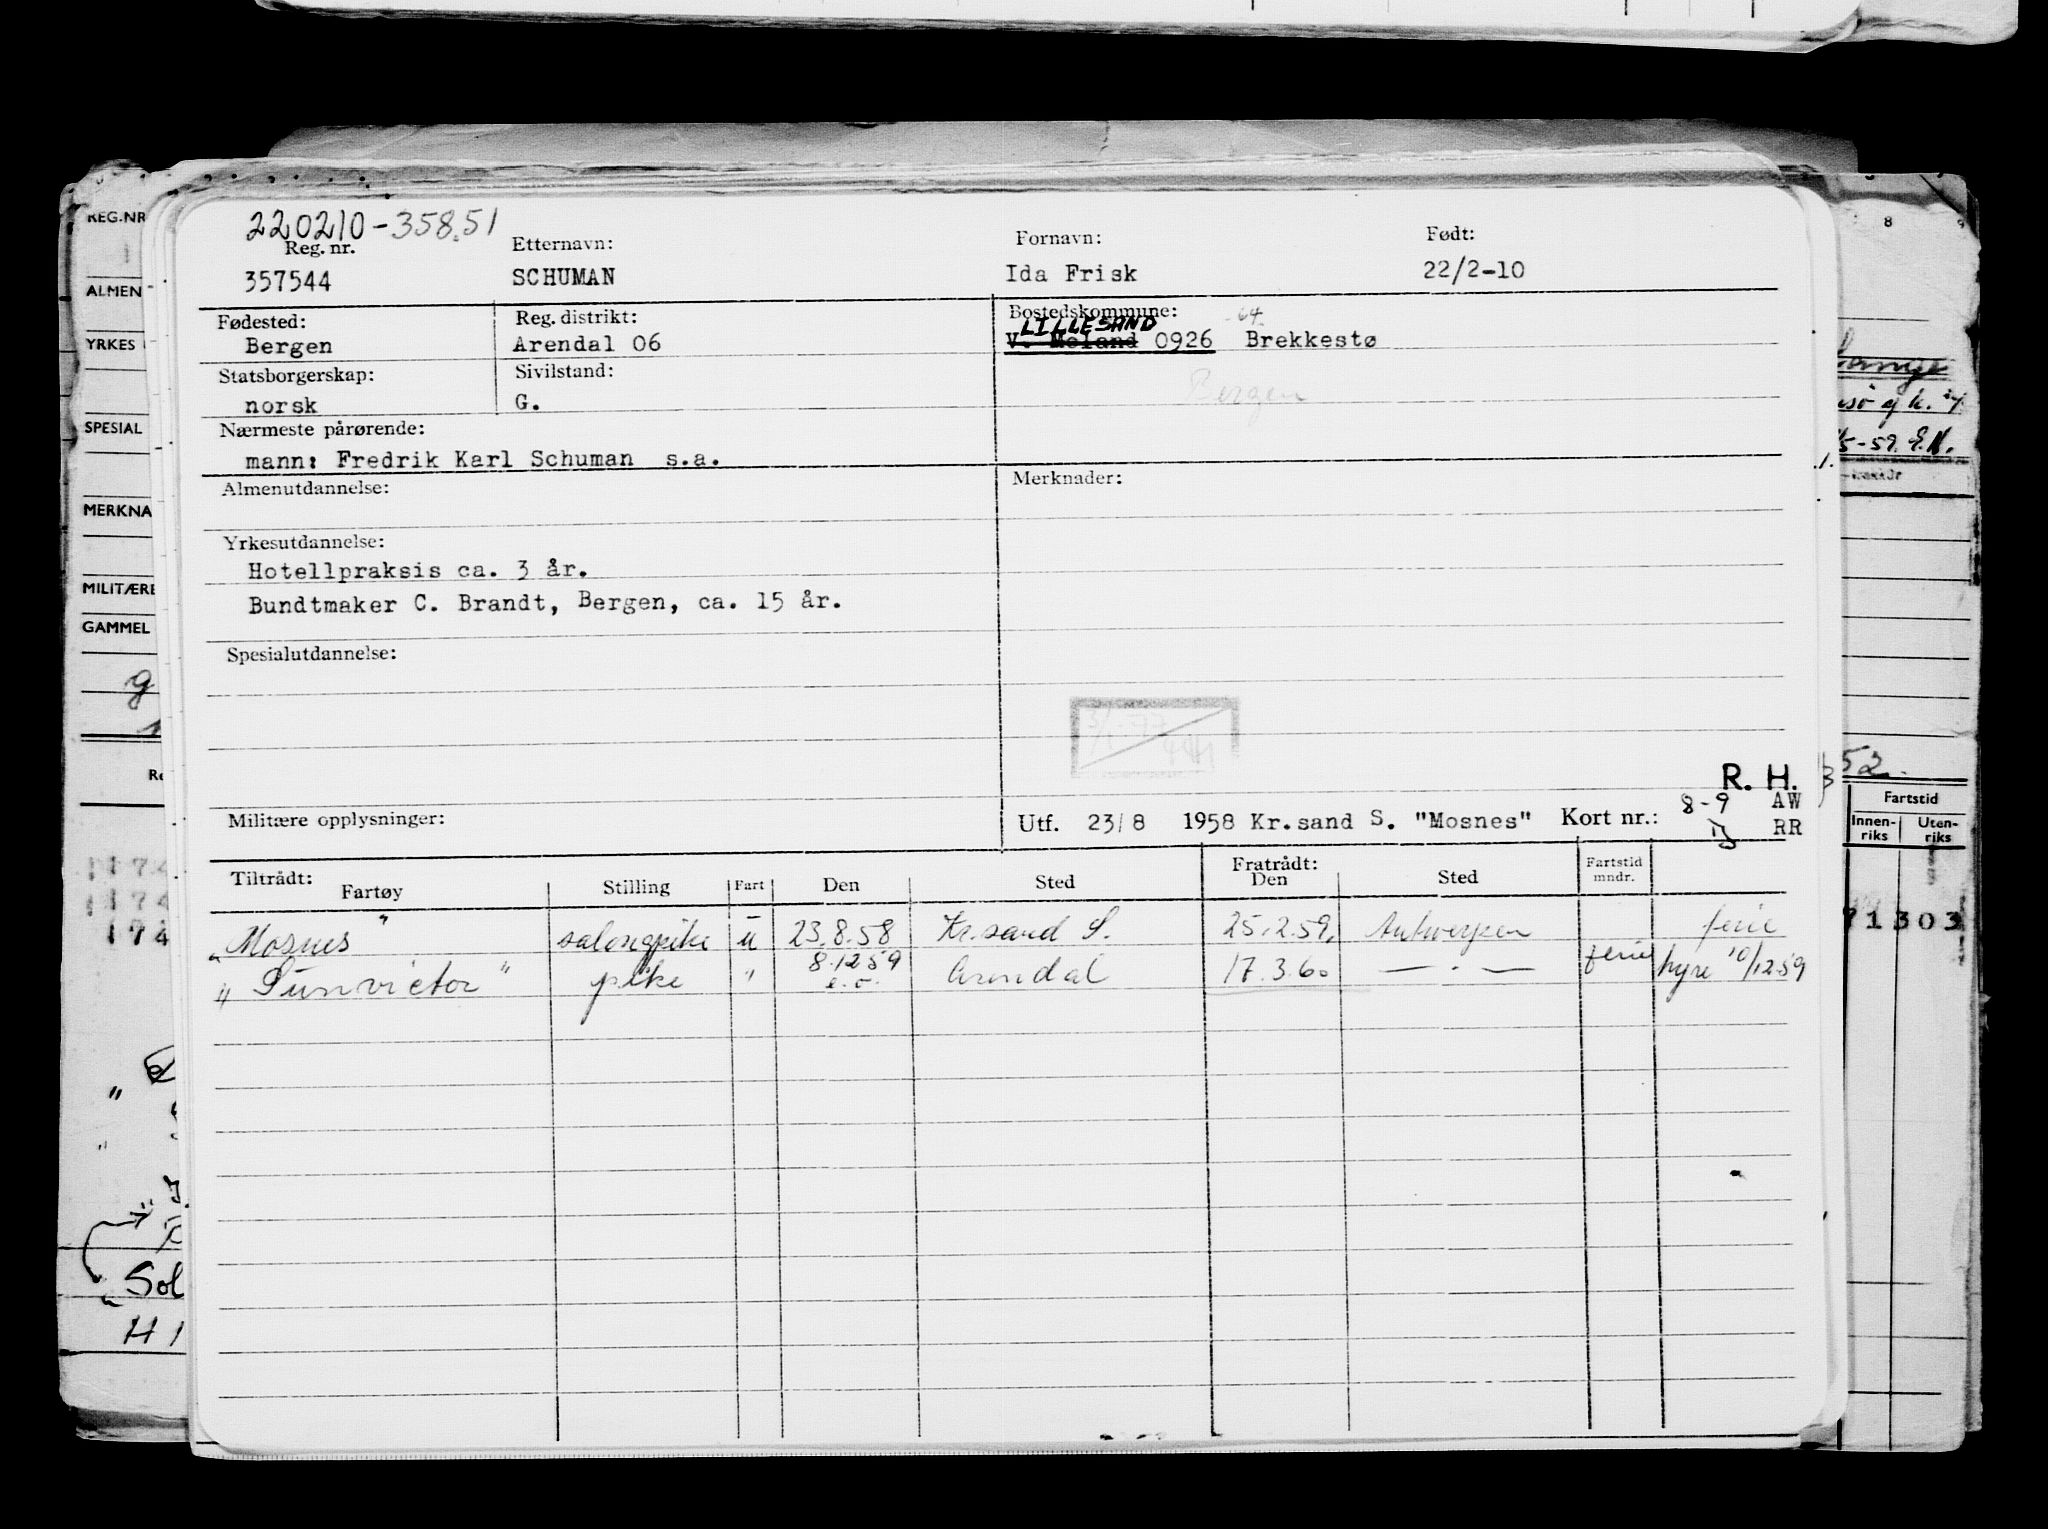 220210-358.51
Reg. nr. Etternavn: Fornavn: Født:
357544 SCHUMAN Ida Frisk 22/2-10
Fødested: Reg. distrikt: Bostedskommune:
LILLESAND -64
Bergen Arendal 06 V. Moland 0926 Brekkestø
Statsborgerskap: Sivilstand:
norsk G. Bergen
Nærmeste pårørende:
mann: Fredrik Karl Schuman s.a.
Almenutdannelse: Merknader:
Yrkesutdannelse:
Hotellpraksis ca. 3 år.
Bundtmaker C. Brandt, Bergen, ca. 15 år.
Spesialutdannelse:
R. H.
Militære opplysninger: Utf. 23/8 1958 Kr.sand S. "Mosnes" Kort nr.: 8-9 AW
RR
Tiltrådt: Fratrådt:
Fartøy Stilling Fart Den Sted Den Sted Fartstid mndr.
"Mosnes" salongpike u 23.8.58 Kr.sand S. 25.2.59. Antwerpen ferie
"Sunvictor" pike " 8.12 59 Arendal 17.3.60 — . — ferie hyre 10/12.59
e.o.
REG.NR
ALMEN
YRKES
SPESIAL
MERKNA
MILITÆRE
GAMMEL
8 9
5-59. E.N.
52.
Fartstid
Innen-riks Uten-riks
71303
174
174
174
Sol
H